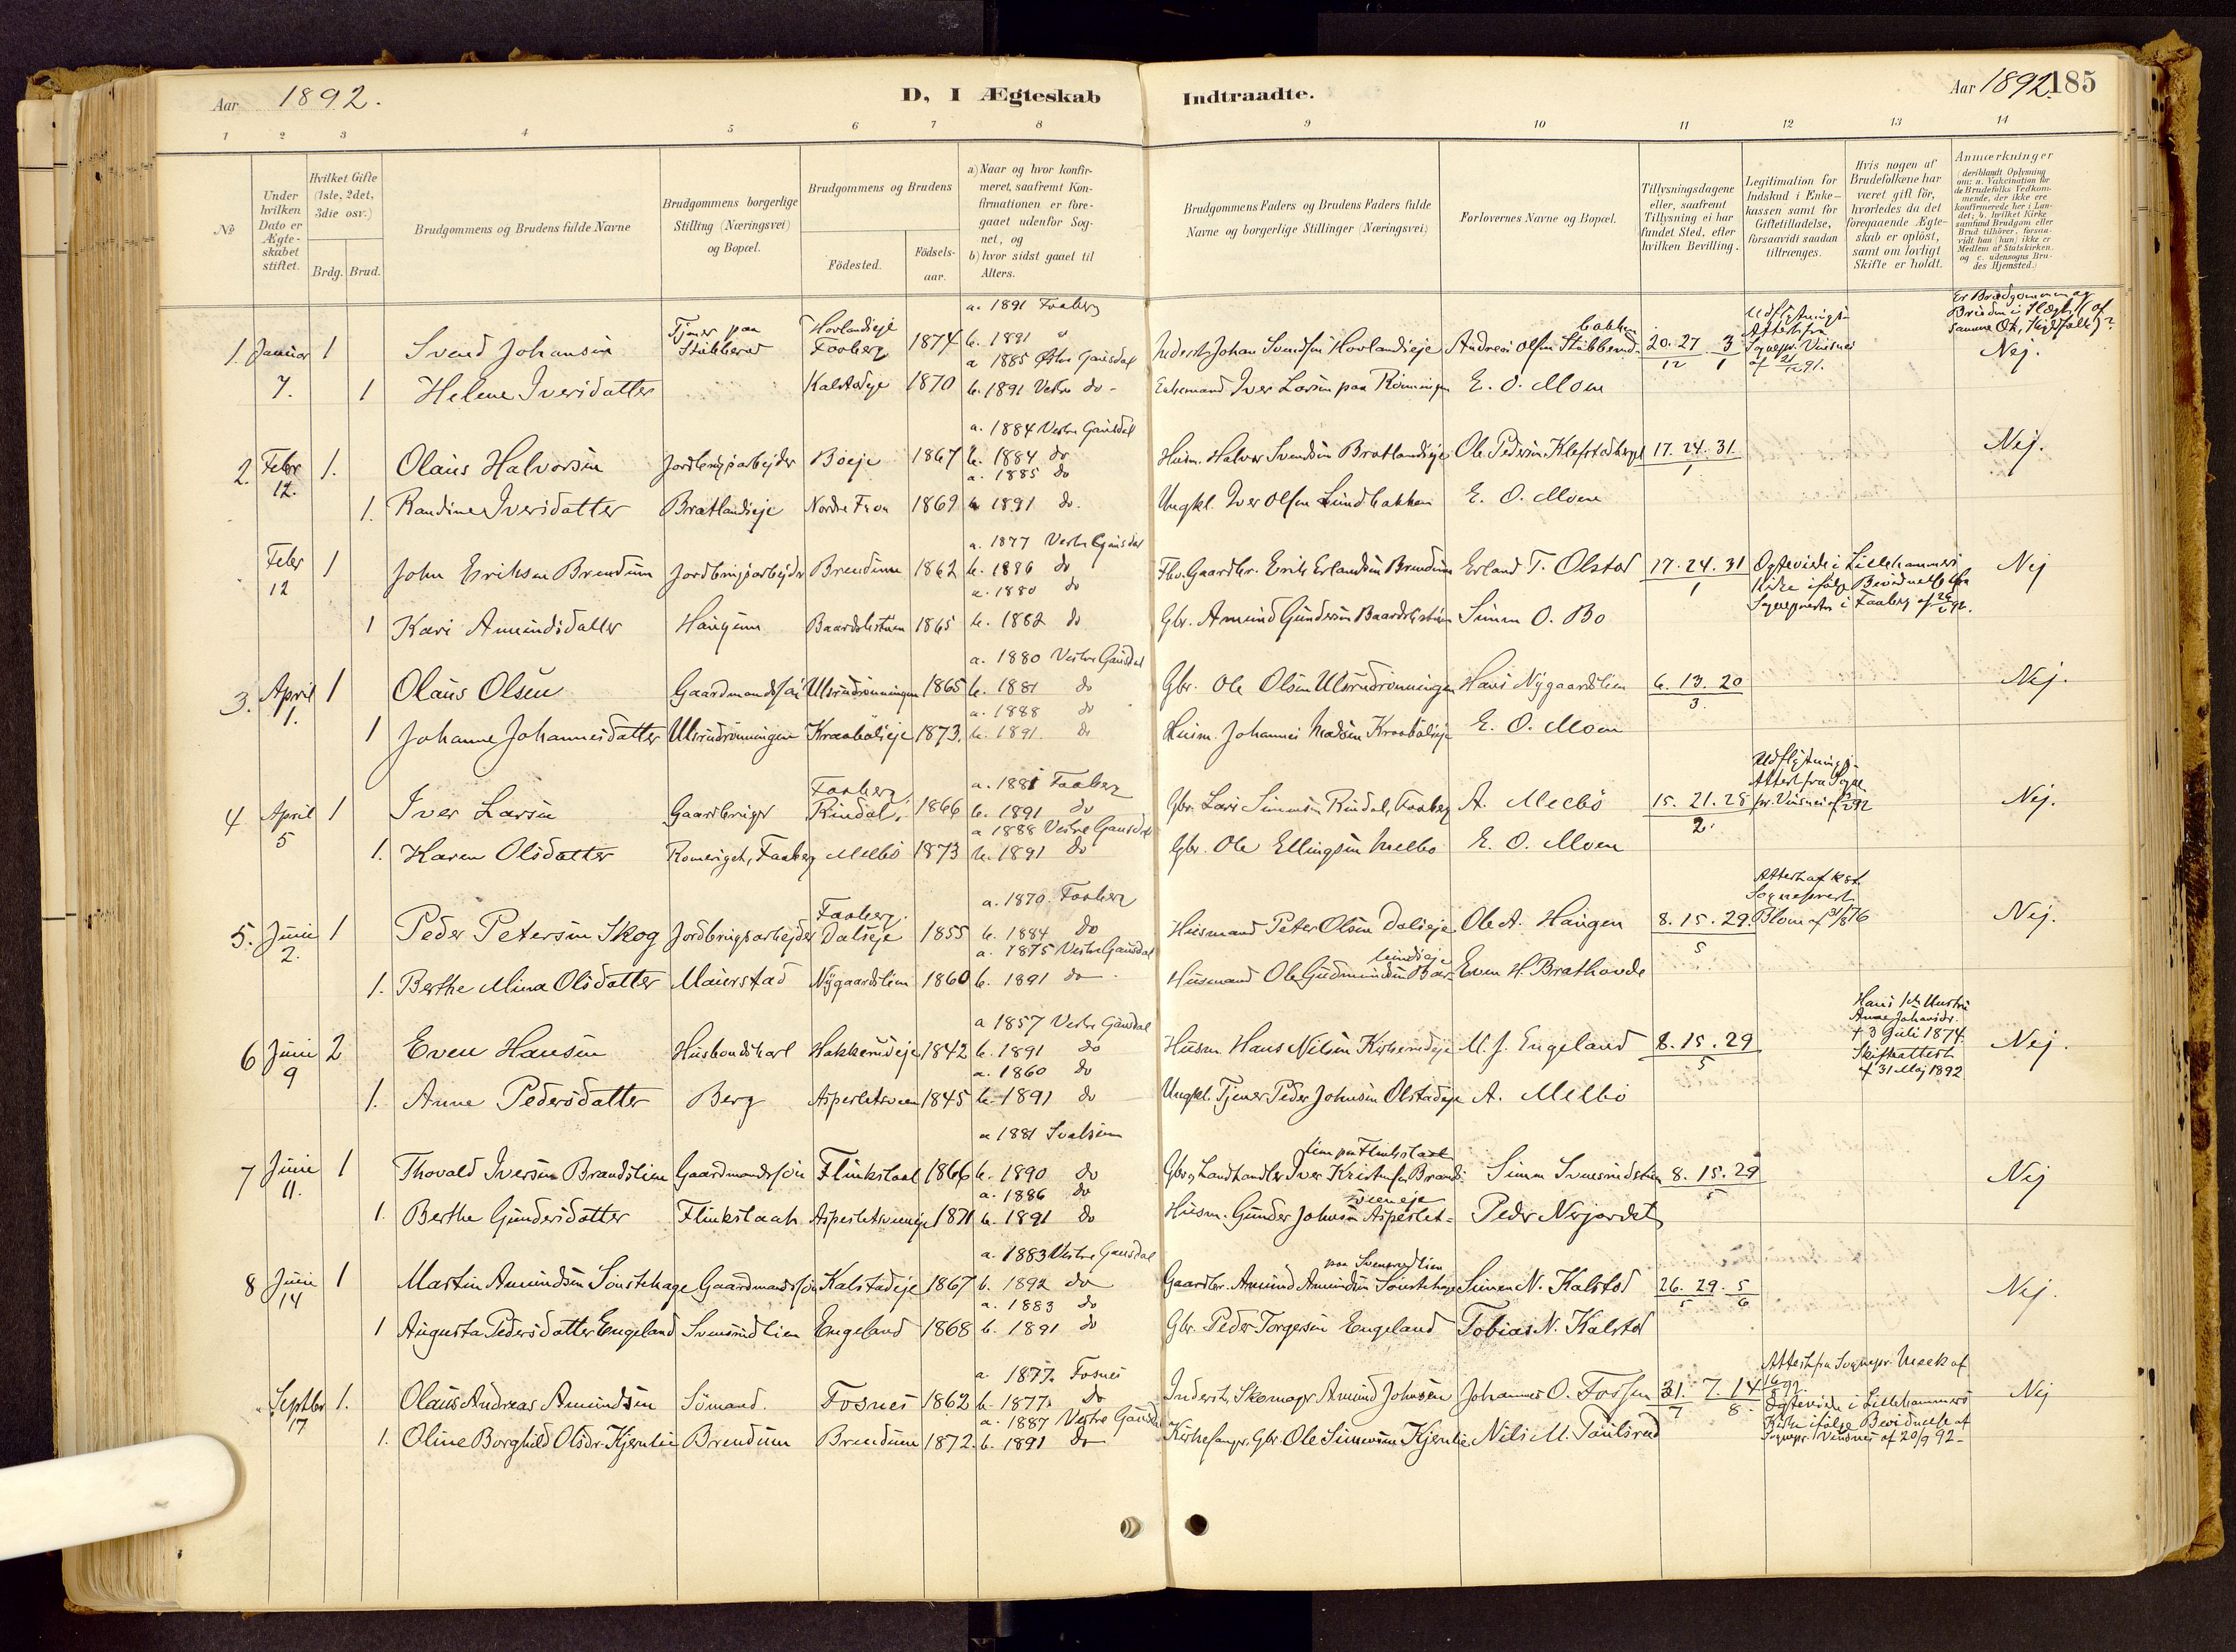 Aar 1892.
D, I Ægteskab Indtraadte.
Aar 1892. 185
1 2 3 4 5 6 7 8 9 10 11 12 13 14
No
Under hvilken Dato er Ægteskabet stiftet.
Hvilket Gifte (1ste, 2det, 3die osv.)
Brdg. Brud.
Brudgommens og Brudens fulde Navne
Brudgommens borgerlige Stilling (Næringsvei) og Bopæl.
Brudgommens og Brudens
Fødested.
Fødselsaar.
a) Naar og hvor konfirmeret, saafremt Konfirmationen er foregaaet udenfor Sognet, og
b) hvor sidst gaaet til Alters.
Brudgommens Faders og Brudens Faders fulde Navne og borgerlige Stillinger (Næringsvei)
Forlovernes Navne og Bopæl.
Tillysningsdagene eller, saafremt Tillysning ei har fundet Sted, efter hvilken Bevilling.
Legitimation for Indskud i Enkekassen samt for Giftetilladelse, forsaavidt saadan tiltrænges.
Hvis nogen af Brudefolkene har været gift før, hvorledes da det foregaaende Ægteskab er opløst, samt om lovligt Skifte er holdt.
Anmærkninger (deriblandt Oplysning om: a. Vakcination for de Brudefolks Vedkommende, der ikke ere konfirmerede her i Landet; b. hvilket Kirkesamfund Brudgom eller Brud tilhører, forsaavidt han (hun) ikke er Medlem af Statskirken. og c. udensogns Brudes Hjemsted.)
Er Brudgommen og Bruden i Slægt
1. Januar 7. 1 Svend Johansen Tjener paa Stubberud Hovlandieje Faaberg 1874 a. 1891 Faaberg b. 1891 Inderst Johan Svendsen Hovlandieje Andreas Olsen Stubberud- bakken 20. 27 3 / 12 1 Udflytnings- Attest fra Sognepr. Nej.
1 Helene Iversdatter Kalstadeje 1870 a 1885 Østre Gausdal b. 1891 Vestre do - Enkemand Iver Larsen paa Rønningen E. O. Moen
2. Febr 12. 1. Olaus Halvorsen Jordbrugsarbejder Bøeje 1867 a. 1884 Vestre Gausdal b. 1884 do Husm. Halvor Svendsen Bratlandieje Ole Pedersen 17. 24. 31 / 1 Nej.
1. Randine Iversdatter Bratlandieje Nordre Fron 1869 a. 1885 do b. 1891 do. Ungkl. Iver Olsen Lundbakken E. O. Moen
Febr 12 1 John Eriksen Brendum Jordbrugsarbejder Brendum 1862 a. 1877 Vestre Gausdal b. 1886 do Fhv. Gaardbr. Erik Erlandsen Brendum Erland T. Olstad 17. 24. 31 / 1 Ægteviede i Lillehammers Kirke ifølge Bevidnelse fra Sognepresten i Faaberg Nej
1 Kari Amundsdatter Haugum Baardslistuen 1865 a. 1880 do b. 1882 do Gbr. Amund Gundersen Baardslistuen Simen O. Bø
3. April 1. 1 Olaus Olsen Gaardmandssøn Ulsrudrønningen 1865 a. 1880 Vestre Gausdal b. 1881 do Gbr. Ole Olsen Ulsrudrønningen Hans Nygaardslien 6. 13. 20 / 3. Nej.
1 Johanne Johannesdatter Ulsrudrønningen Kraabølseje 1873. a. 1888 do b. 1891. do Husm. Johannes Madsen Kraabølseje E. O. Moen
4 April 5 1 Iver Larsen Gaardbruger Faaberg Rindal, 1866 a. 1881 Faaberg b. 1891 do Gbr. Lars Simensen Rindal, Faaberg A. Melbø 15. 21. 28 / 2. Udflytnings- Attest fra Sogne- pr. Nej.
1. Karen Olsdatter Romeriget, Faaberg Melbø 1873 a 1888 Vestre Gausdal b. 1891 do Gbr. Ole Ellingsen Melbø E. O. Moen
5. Juni 2. 1 Peder Petersen Skog Jordbrugsarbejder Faaberg. Dalseje 1855 a. 1870. Faaberg b. 1884 do Husmand Peter Olsen Dalseje Ole A. Haugen 8. 15. 29. / 5 Attest af Sogneprest Blom Nej.
1. Berthe Mina Olsdatter Maurstad Nygaardslien 1860 a. 1875 Vestre Gausdal b. 1891 do Husmand Ole Gudmundsen Even H. Brathovde
6 Juni 9 2 Even Hansen Husbondskarl Hakkerudeje 1842 a 1857 Vestre Gausdal b. 1891 do Husm Hans Nilsen M. J. Engeland 8. 15. 29 / 5 Hans 1ste Hustru Anne Johansdr. † 3 Juli 1874. Skifteattest af 31 Maj 1892 Nej.
1. Anne Pedersdatter Berg Asperletsveen 1845 a. 1860 do b. 1891 do Ungkl. Tjener Peder Johnsen Olstadeje A. Melbø
7 Juni 11. 1 Thovald Iversen Brandslien Gaardmandssøn Flinkstaal 1866 a 1881 Svatsum b. 1890 do Gbr og Landhandler Iver Kristensen Brands- lien paa Flinkstaal Simen Svensrudstuen 8. 15. 29 / 5 Nej
1. Berthe Gundersdatter Flinkstaal Asperletsveeneje 1871 a. 1886 do b. 1891 do Husm. Gunder Johnsen Asperlet- sveeneje Peder Nerjordet
8 Juni 14 1 Martin Amundsen Sonstehage Gaardmandssøn Kalstadeje 1867 a. 1883 Vestre Gausdal b. 1892 do Gaardbr. Amund Amundsen Sonstehage paa Svensrudlien Simen N. Kalstad 26. 29. 5 / 5 6 Nej.
1 Augusta Pedersdatter Engeland Svensrudlien Engeland 1868 a. 1883 do b. 1891 do Gbr. Peder Torgersen Engeland Tobias N. Kalstad
Septbr 17 1. Olaus Andreas Amundsen Sømand. Fosnes 1862 a 1877. Fosnes b. 1877. do Inderst, Skomager Amund Johnsen Johannes O. Fossen 31. 7. 14 / 7 8. Attest fra Sognepr. Meek af Ægteviede i Lillehammers Kirke ifølge Bevidnelse af Sognepr. af 20/9 92- Nej
1. Oline Borghild Olsdr. Kjernlie Brendum Brendum 1872. a. 1887 Vestre Gausdal b. 1891 do Kirkesanger, Gbr. Ole Simensen Kjernlie Nils M. Taulsrud